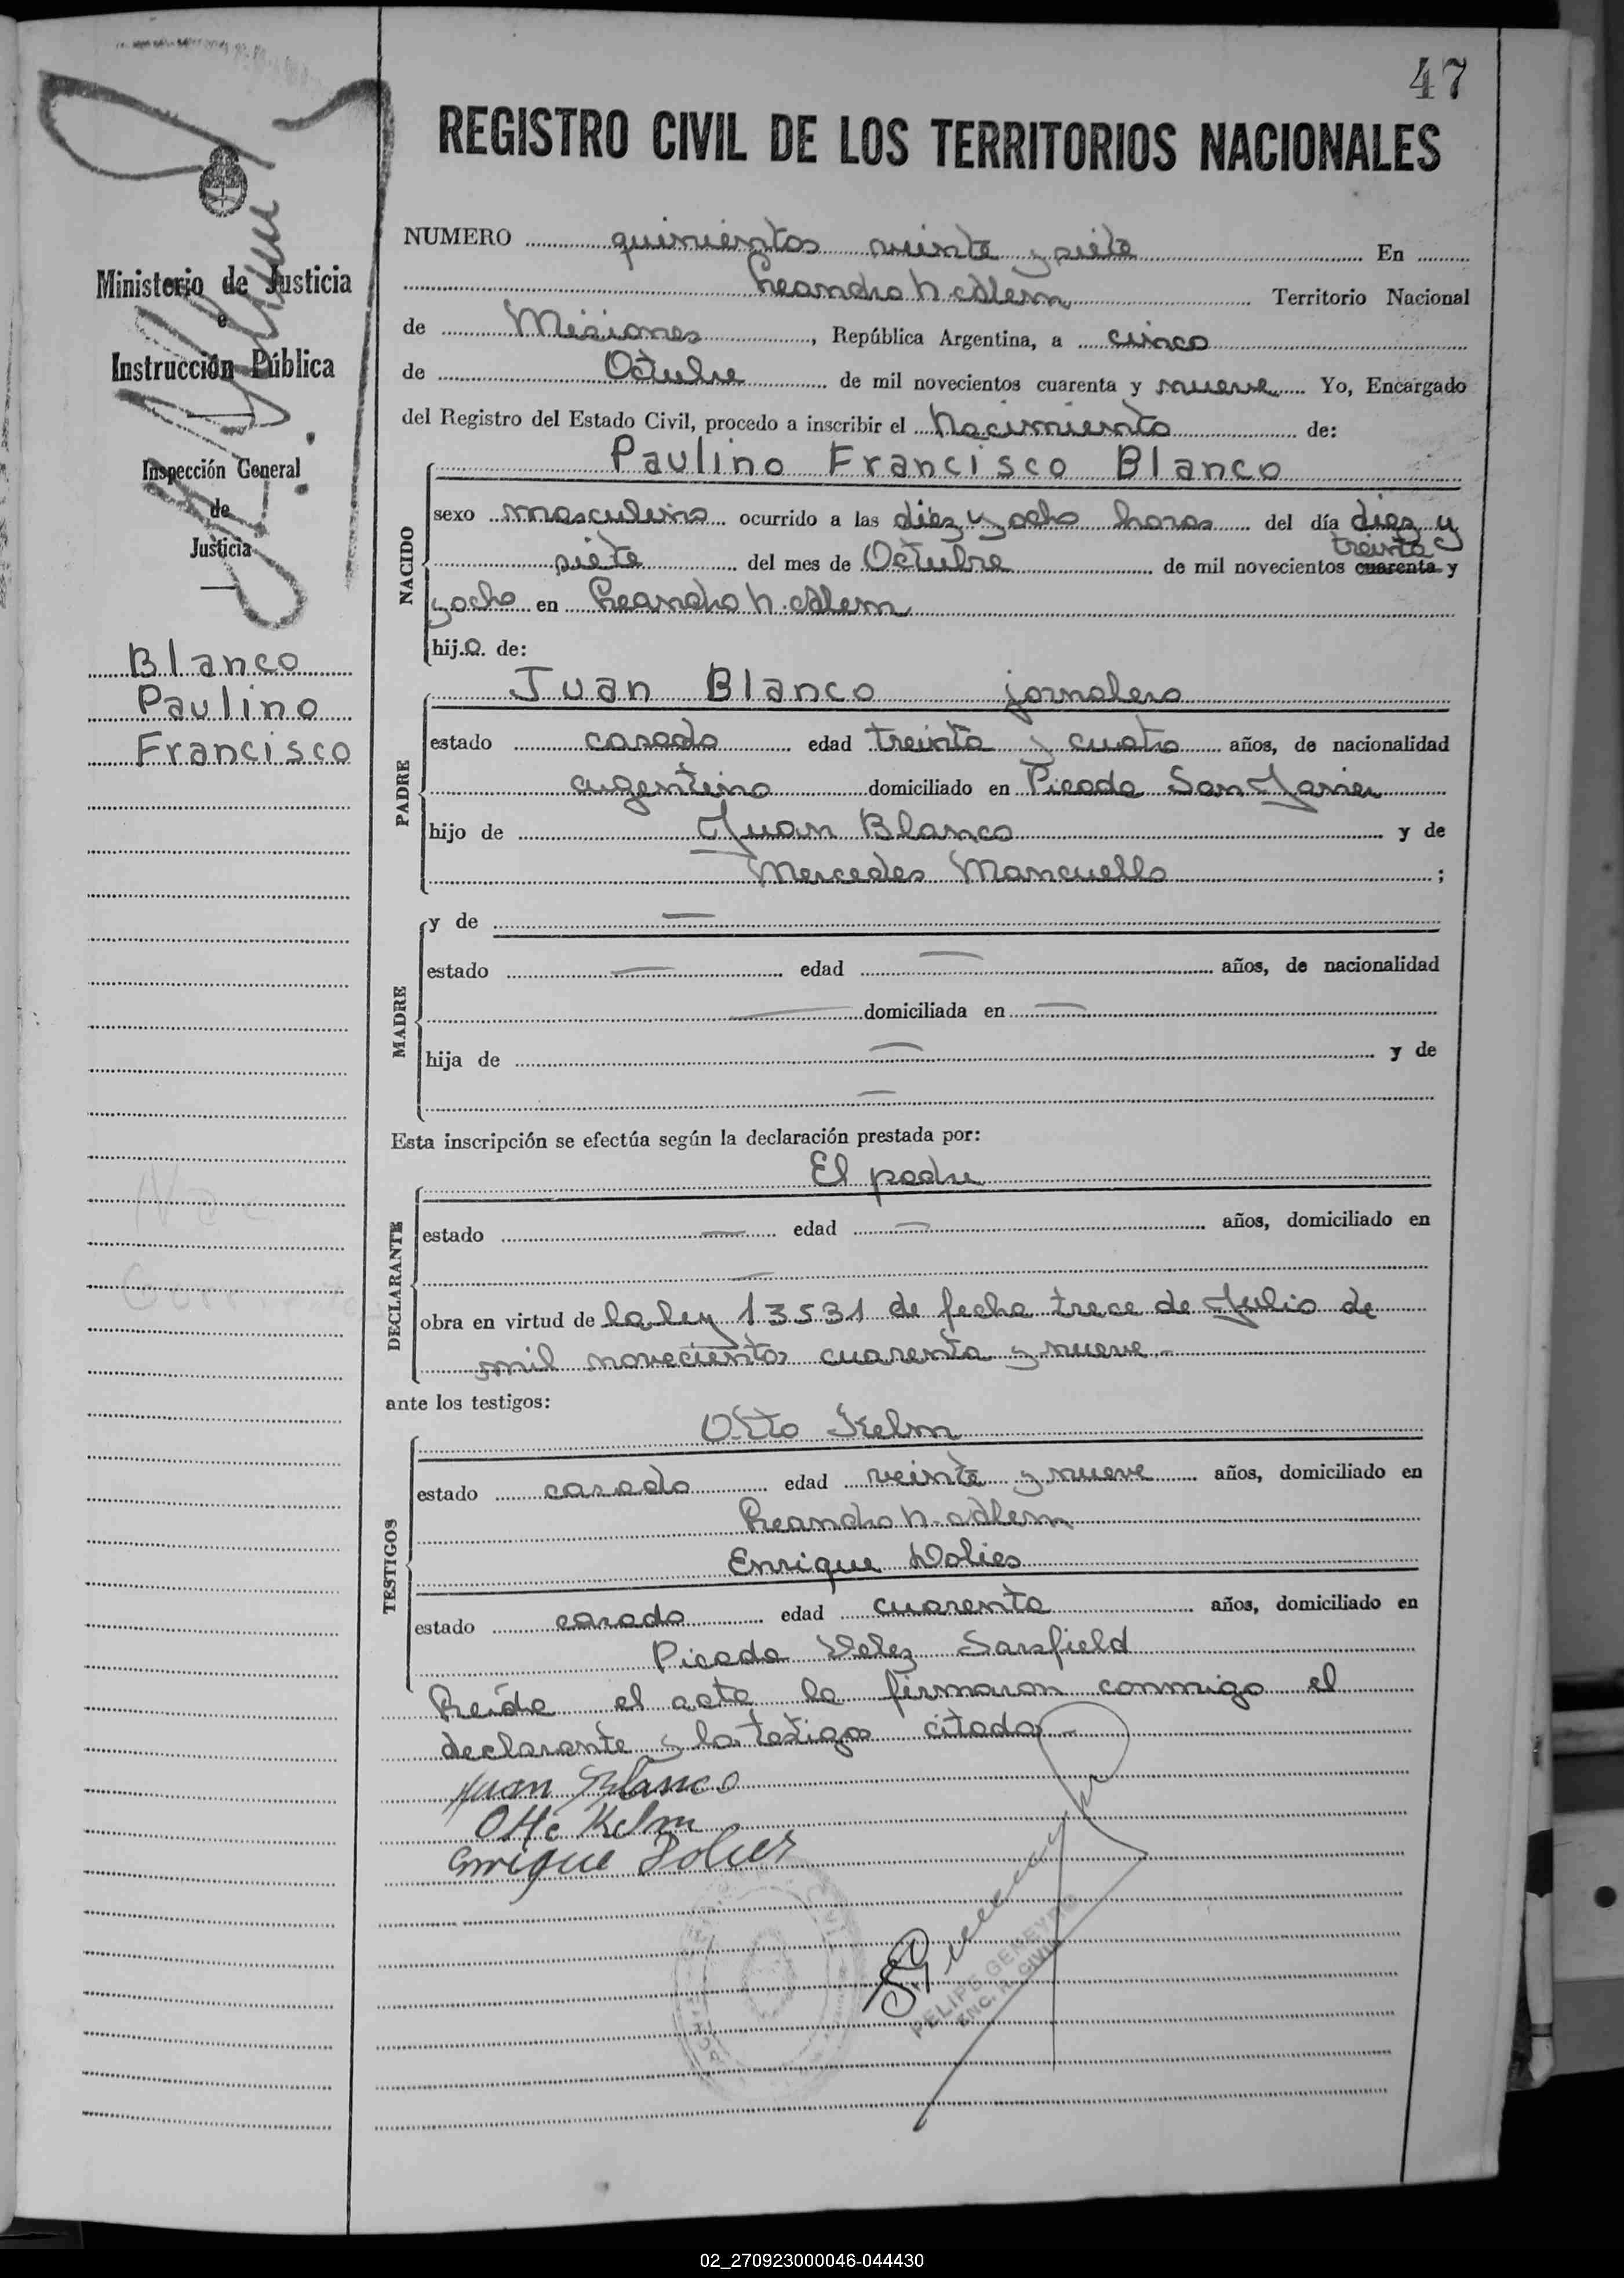 47
REGISTRO CIVIL DE LOS TERRITORIOS NACIONALES
Ministerio de Justicia
e
Instrucción Pública
Inspección General
de
Justicia
Blanco
Paulino
Francisco
NUMERO quinientos veinte y siete En
Leandro N. Alem Territorio Nacional
de Misiones, República Argentina, a cinco
de Octubre de mil novecientos cuarenta y nueve Yo, Encargado
del Registro del Estado Civil, procedo a inscribir el Nacimiento de:
NACIDO
Paulino Francisco Blanco
sexo masculino ocurrido a las diez y ocho horas del día diez y
treinta
siete del mes de Octubre de mil novecientos cuarenta y
y ocho en Leandro N. Alem
hijo de:
PADRE
Juan Blanco jornalero
estado casado edad treinta y cuatro años, de nacionalidad
argentino domiciliado en Picada San Javier
hijo de Juan Blanco y de
Mercedes Mancuello ;
MADRE
y de —
estado — edad — años, de nacionalidad
— domiciliada en —
hija de — y de
—
Esta inscripción se efectúa según la declaración prestada por:
DECLARANTE
El padre
estado — edad — años, domiciliado en
—
obra en virtud de la ley 13531 de fecha trece de Julio de
mil novecientos cuarenta y nueve.-
ante los testigos:
TESTIGOS
Otto Kelm
estado casado edad veinte y nueve años, domiciliado en
Leandro N. Alem
Enrique Dolies
estado casado edad cuarenta años, domiciliado en
Picada Velez Sarsfield
Leída el acta la firmaron conmigo el
declarante y los testigos citados.-
Juan Blanco
Otto Kelm
Enrique Dolies
FELIPE GENEYRO
ENC. R. CIVIL
02_270923000046-044430